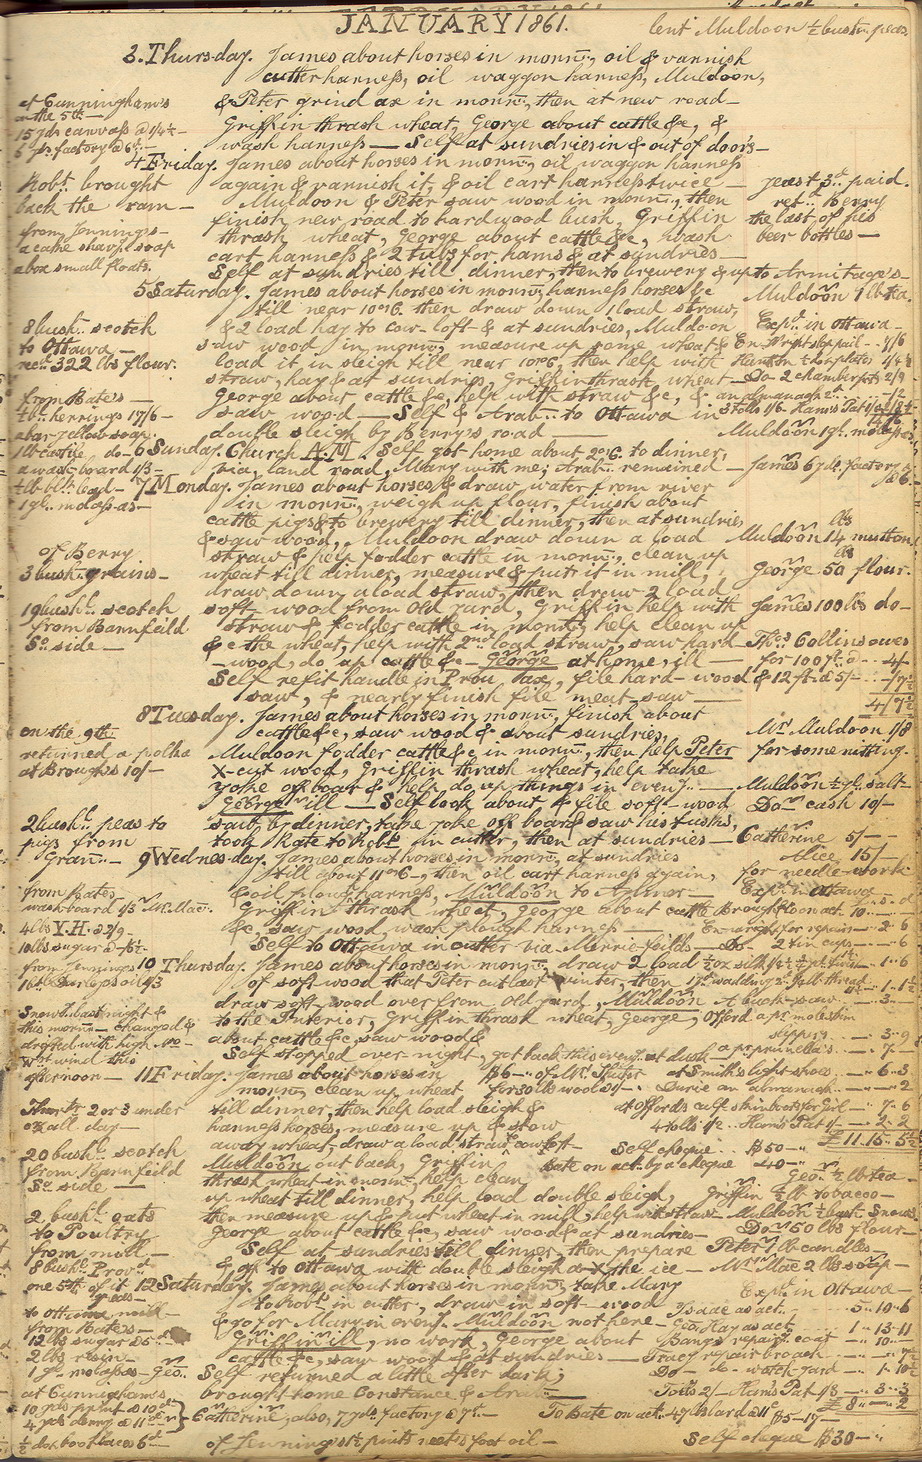 JANUARY 1861.
lent Muldoon ½ bush. peas.
3. Thursday. James about horses in morn., oil & varnish
cutter harness, oil waggon harness, Muldoon,
& Peter grind ax in morn., then at new road—
Griffin thrash wheat, George about cattle &c, &
wash harness — Self at sundries in & out of doors—
at Cunningham's
on the 5th—
15 yds canvass @ 1/4½—
6 yds. factory @ 6d—
4 Friday. James about horses in morn., oil waggon harness
again & varnish it, & oil cart harness twice—
Muldoon & Peter saw wood in morn., then
finish new road to hardwood bush, Griffin
thrash wheat, George about cattle &c, wash
cart harness & 2 tubs for hams & at sundries—
Self at sundries till dinner, then to brewery & up to Armitage's—
Robt. brought
back the ram—
from Jennings—
a cake shavg. soap
a box small floats.
yeast 3d paid.
ret.. to Berry
the last of his
beer bottles—
5 Saturday. James about horses in morn., harness horses &c
till near 10 o'c. then draw down 1 load straw,
& 2 load hay to cow-loft & at sundries, Muldoon
saw wood in morn., measure up some wheat &
load it in sleigh till near 10 o'c, then help with
straw, hay & at sundries, Griffin thrash wheat—
George about cattle &c, help with straw &c, &
saw wood — Self & Arab.. to Ottawa in
double sleigh by Berry's road—
8 bush. scotch
to Ottawa—
recd. 322 lbs flour.
from Bate's—
½ b. herrings 17/6—
a bar yellow soap.
1 lb castile do—
a wash board 1/3—
½ lb blk. lead—
1 gl. molass-as—
Muldoon 1 lb tea.
Expd. in Ottawa—
an almanack
Muldoon 1 gl. molasses
6 Sunday. Church A.M. Self got home about 2 o'c. to dinner,
via, land road, Mary with me; Arab. remained—
James 6 yds. factory @ 6.
7 Monday. James about horses & draw water from river
in morn., weigh up flour, finish about
cattle pigs & to brewery till dinner, then at sundries
& saw wood, Muldoon draw down a load
straw & help fodder cattle in morn., clean up
wheat till dinner, measure & put it in mill,
draw down a load straw, then draw 2 load
soft wood from old yard, Griffin help with
straw & fodder cattle in morn., help clean up
&c the wheat, help with 2nd load straw, saw hard
—wood, do up cattle &c— George at home, ill—
Self refit handle in Prov. ax, file hard-wood
saw, & nearly finish file meat saw—
of Berry
3 bush. grains—
19 bush. scotch
from Barnfeild
So. side—
Muldoon 14 lbs mutton
George 50 lbs flour.
James 100 lbs do—
Thos. Collins owes
for 100 ft. @ - - 4/-
& 12 ft. @ 5/- - -/7½
4/7½
8 Tuesday. James about horses in morn., finish about
cattle &c, saw wood & about sundries,
Muldoon fodder cattle &c in morn., then help Peter
X-cut wood, Griffin thrash wheat, help take
yoke off boar & help do up things in eveng.—
George ill — Self look about, & file soft-wood
saw by dinner, take yoke off boar & saw his tusks,
took Kate to Robt. in cutter, then at sundries—
on the 9th
returned a polka
at Brough's 10/-
2 bushl. peas to
pigs from
Gran..—
Mr. Muldoon 1/8
for some nitting.
Muldoon ½ gl. salt—
Do.. cash 10/-
Catherine 5/-
Alice 15/-
for needle-work
9 Wednes-day. James about horses in morn., at sundries
till about 11 o'c—, then oil cart harness again,
& oil plough harness, Muldoon to Aylmer—
Griffin thrash wheat, George about cattle
&c, saw wood, wash plough harness—
Self to Ottawa in cutter via Merrifeilds—
from Bates
washboard 1/3 Mr. Mac.
4 lbs Y.H. @ 2/9—
10 lbs sugar @ -/5½—
from Jennings
Expd. in Ottawa—
Do— 2 tin cups - - 6
10 Thursday. James about horses in morn., draw 2 load
of soft wood that Peter cut last winter, then
draw soft wood over from old yard, Muldoon
to the Interior, Griffin thrash wheat, George,
about cattle &c, saw wood &
Self stopped over night, got back this eveng. at dusk—
Snow last night &
this morn— changed &
drifted with high No—
Wst. wind this
afternoon—
A buck-saw - - 3—
Offord a pr. moleskin
slippers - - 3-9
a pr. prunella's - - 7—
at Smith's light shoes - - 6-3
Durie an almanack - - 2
at Offords calf skin boots for girl— 7-6
£11.15.
11 Friday. James about horses in
morn., clean up wheat
till dinner, then help load sleigh &
harness horses, measure up & stow
away wheat, draw a load straw to cow loft—
Muldoon out back, Griffin
thrash wheat in morn., help clean
up wheat till dinner, help load double sleigh,
then measure up & put wheat in mill, help wt. straw—
George about cattle &c, saw wood & at sundries—
Self at sundries till dinner, then prepare
& go to Ottawa with double sleigh a-X the ice—
$6—.. of Mr. Shuter
for 30 lbs wool
Thermr. 2 or 3 under
0 all day—
20 bush. scotch
from Barnfeild
So. side—
2 bushl. oats
to Poultry
from mill—
8 bush. Provd.
Self cheque.. $50—..
Bate on act. by a cheque 40—..
Geo. ½ lb tea—
Griffin ½ lb tobacco—
Do.. 50 lbs flour—
Peter 1 lb candles—
Mrs. Mac 2 lbs soap—
12 Saturday. James about horses in morn., take Mary
to Robts. in cutter, draw in soft-wood
& go for Mary in eveng. Muldoon not here—
Griffin ill, no work, George about
cattle &c, saw wood & at sundries—
Self returned a little after dark,
brought home Constance & Arab..
to Ottawa mill—
from Bate's—
12 lbs sugar @ 5d—
2 lbs rosin—
1 gl. molasses—Geo..
at Cunningham's
10 yds print @ 10d
4 yds demy @ 11d
½ doz. boot laces 6d—
Catherine, also, 7 yds. factory @ 7d—
of Jennings 1½ pints neat's foot oil—
Expd. in Ottawa—
Isaac as act. - - 5-10-6
Geo. Kay as act - - 1-13-11
Bangs repairg. coat - - 10—
Tracy repair broach - -
Do— do— watch gard— 1-10½
Tolls 2/- Ham's Pat 1/3 - - 3-3
£8-..-2
To Bate on act. 47 lbs lard @ 11c $5-17—
Self cheque $30—..